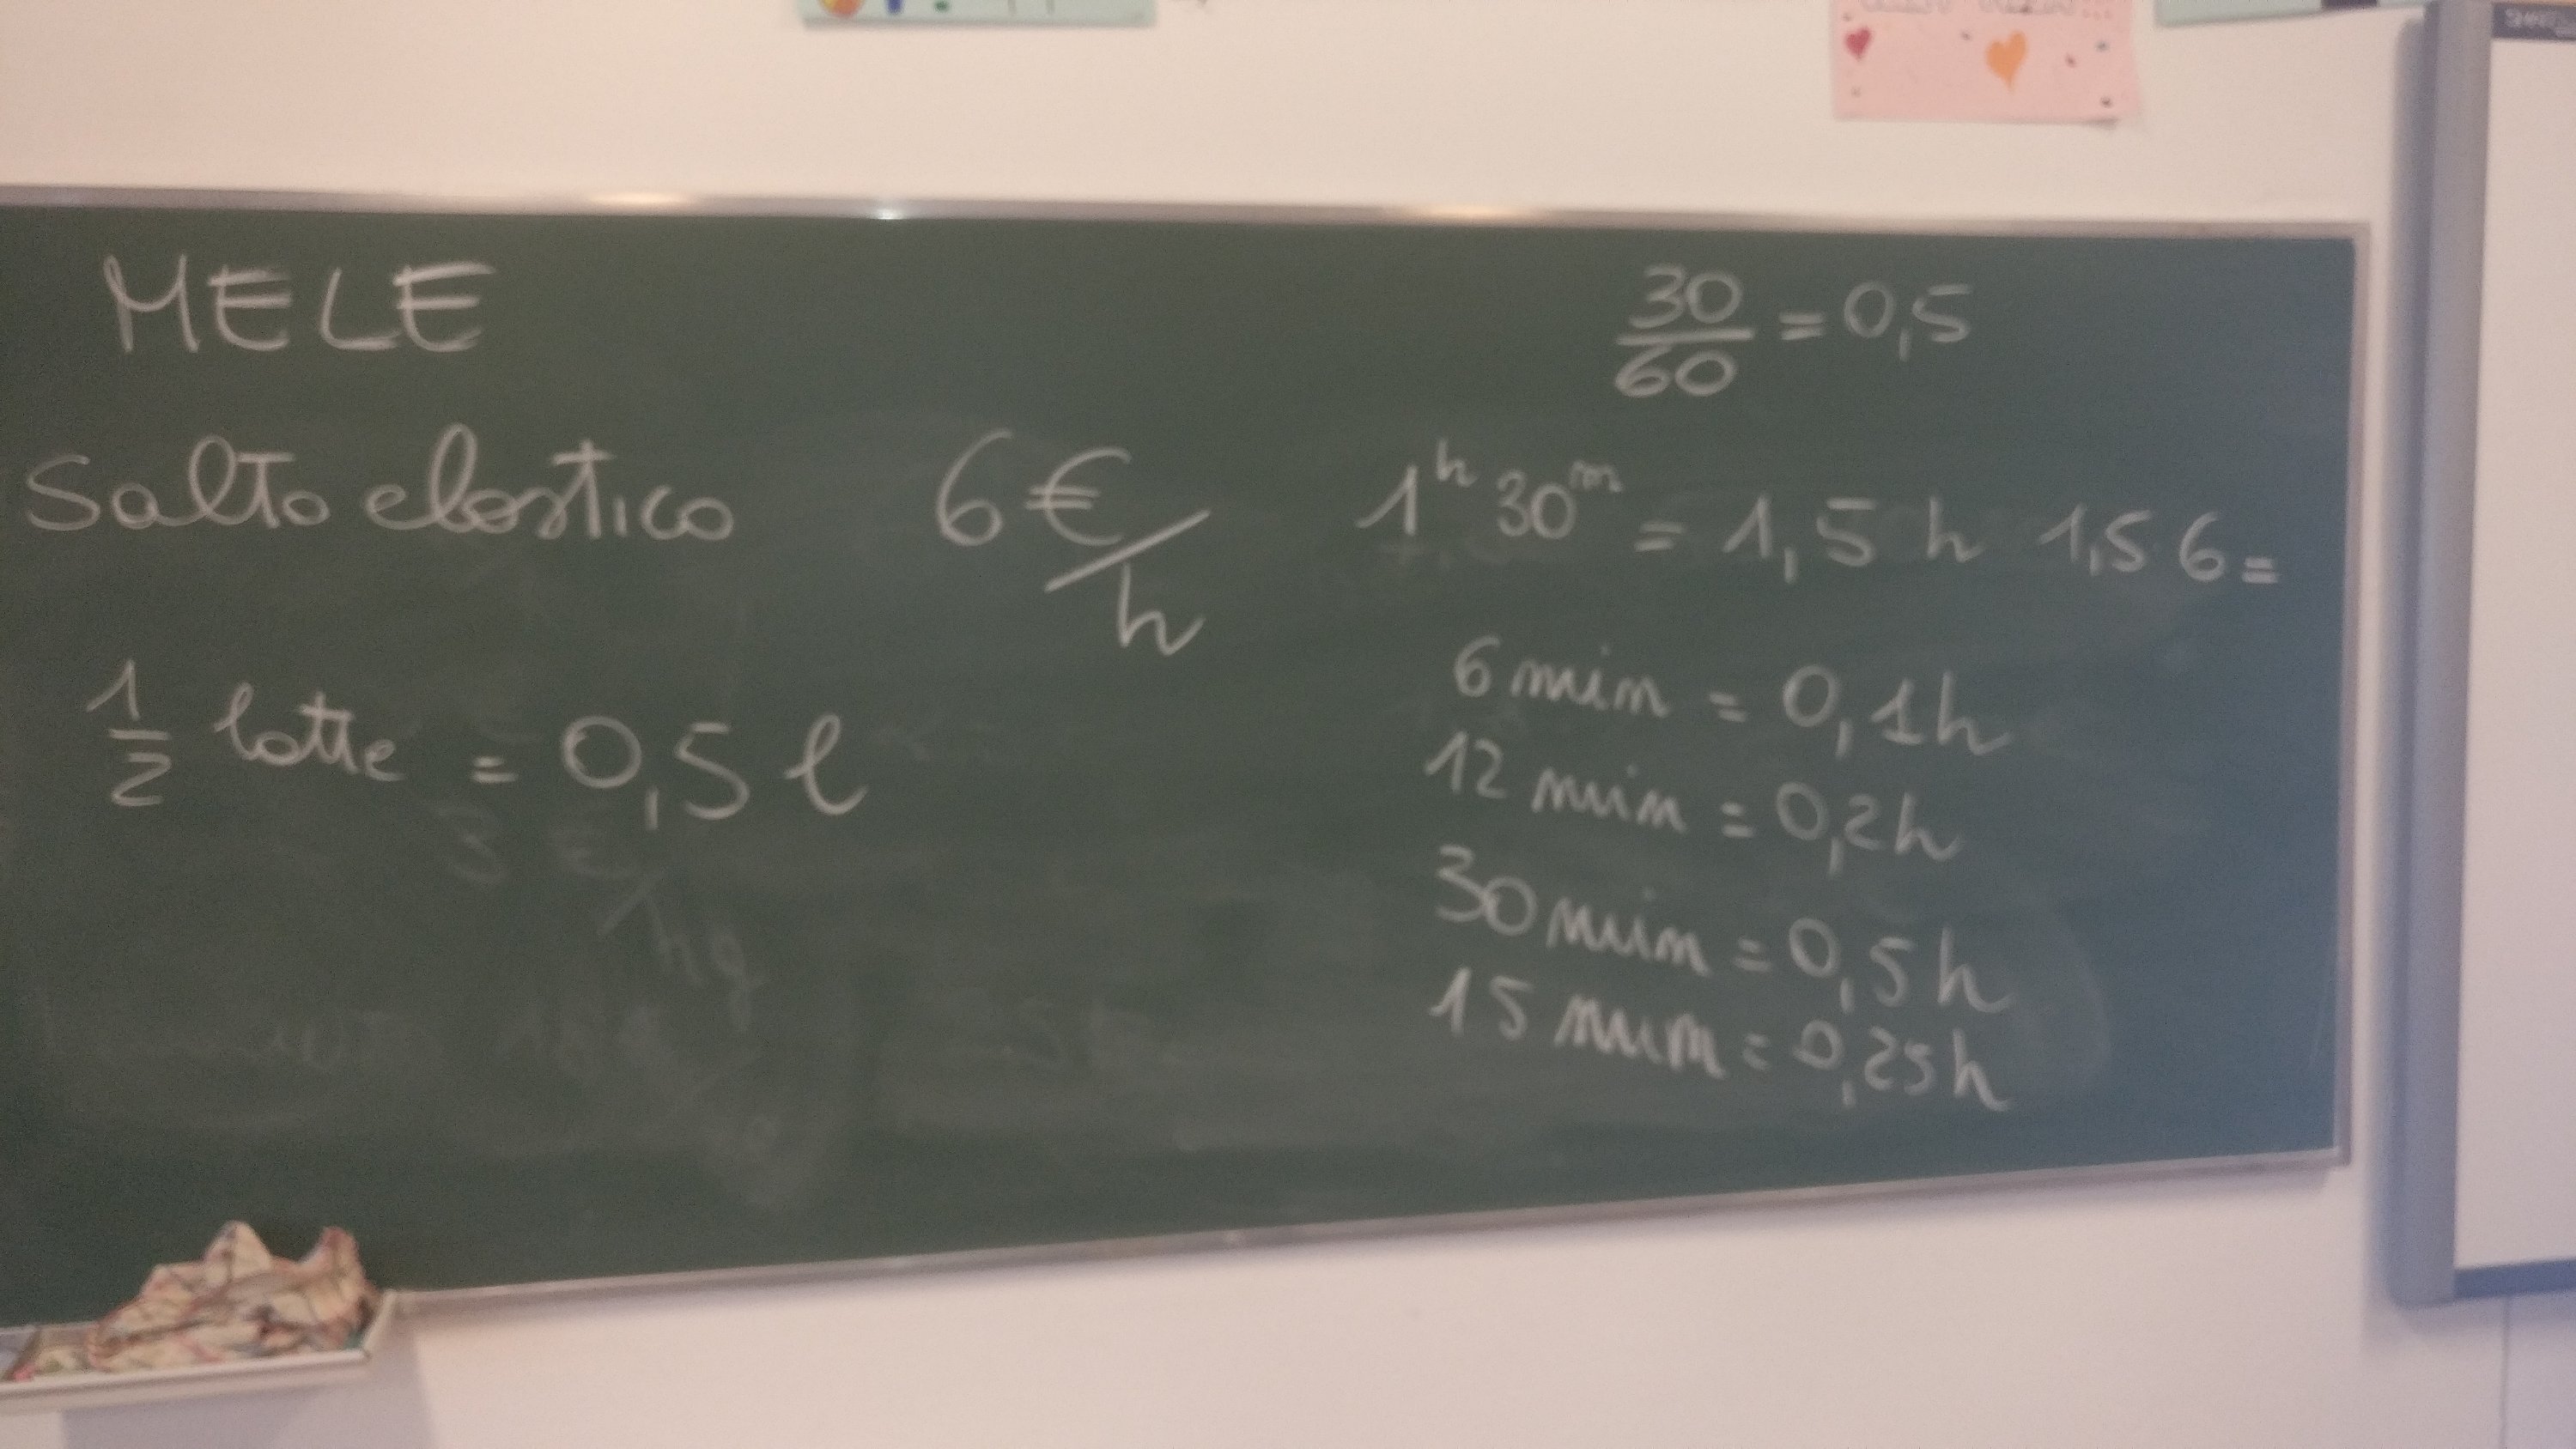 MELE
Salto elastico 6€/h
1/2 latte = 0,5 l
3 €/hg
30/60 = 0,5
1h 30m = 1,5 h 1,5 6 =
6 min = 0,1h
12 min = 0,2h
30 min = 0,5h
15 min = 0,25h